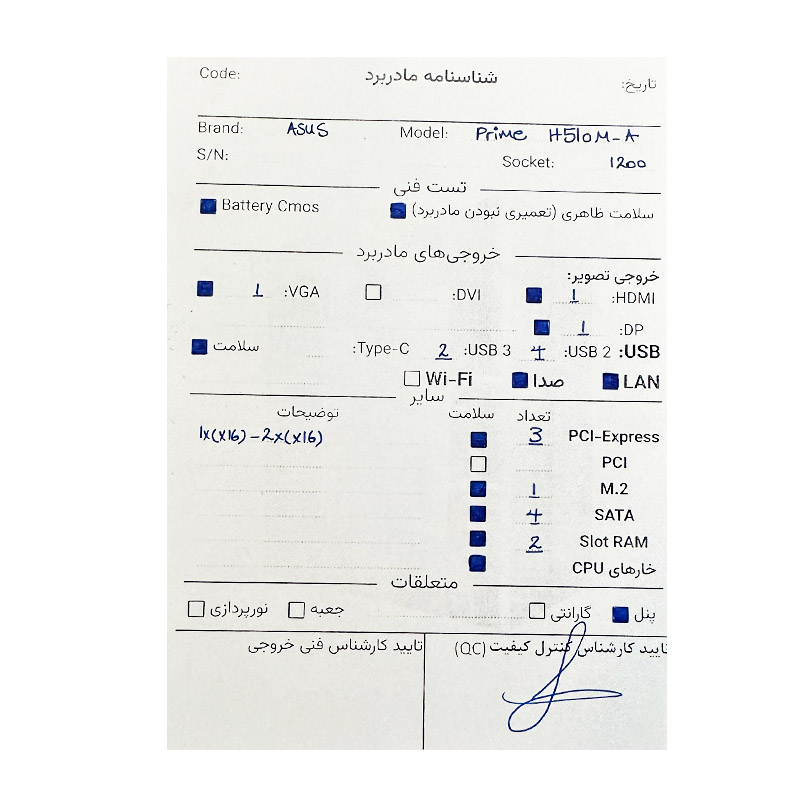 شناسنامه مادربرد
تاریخ:
Code:
Brand: ASUS Model: Prime H510M-A
S/N: Socket: 1200
تست فنی
سلامت ظاهری (تعمیری نبودن مادربرد) Battery Cmos
خروجی‌های مادربرد
خروجی تصویر:
HDMI: 1 DVI: VGA: 1
DP: 1
USB: USB 2: 4 USB 3: 2 Type-C: سلامت
LAN صدا Wi-Fi
سایر
تعداد سلامت توضیحات
PCI-Express 3 1x(x16) - 2x(x16)
PCI
M.2 1
SATA 4
Slot RAM 2
خارهای CPU
متعلقات
پنل گارانتی جعبه نورپردازی
تایید کارشناس کنترل کیفیت (QC) تایید کارشناس فنی خروجی